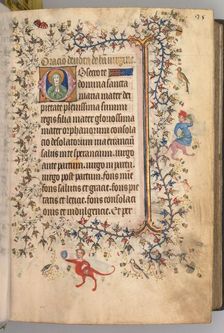 Oratio devota de b̄a virgine.
Obsecro te
domina sancta
maria mater dei
pietate plenissima summi
regis filia mater gloriosissima
mater orphanorum consola
cio desolatorum via errantiū
salus in te sperantium. virgo
ante partum. virgo in partu
virgo post partum. fons mise
fons salutis et gracie. fons pie
tatis et leticie. fons consolati
onis et indulgentie. Et per